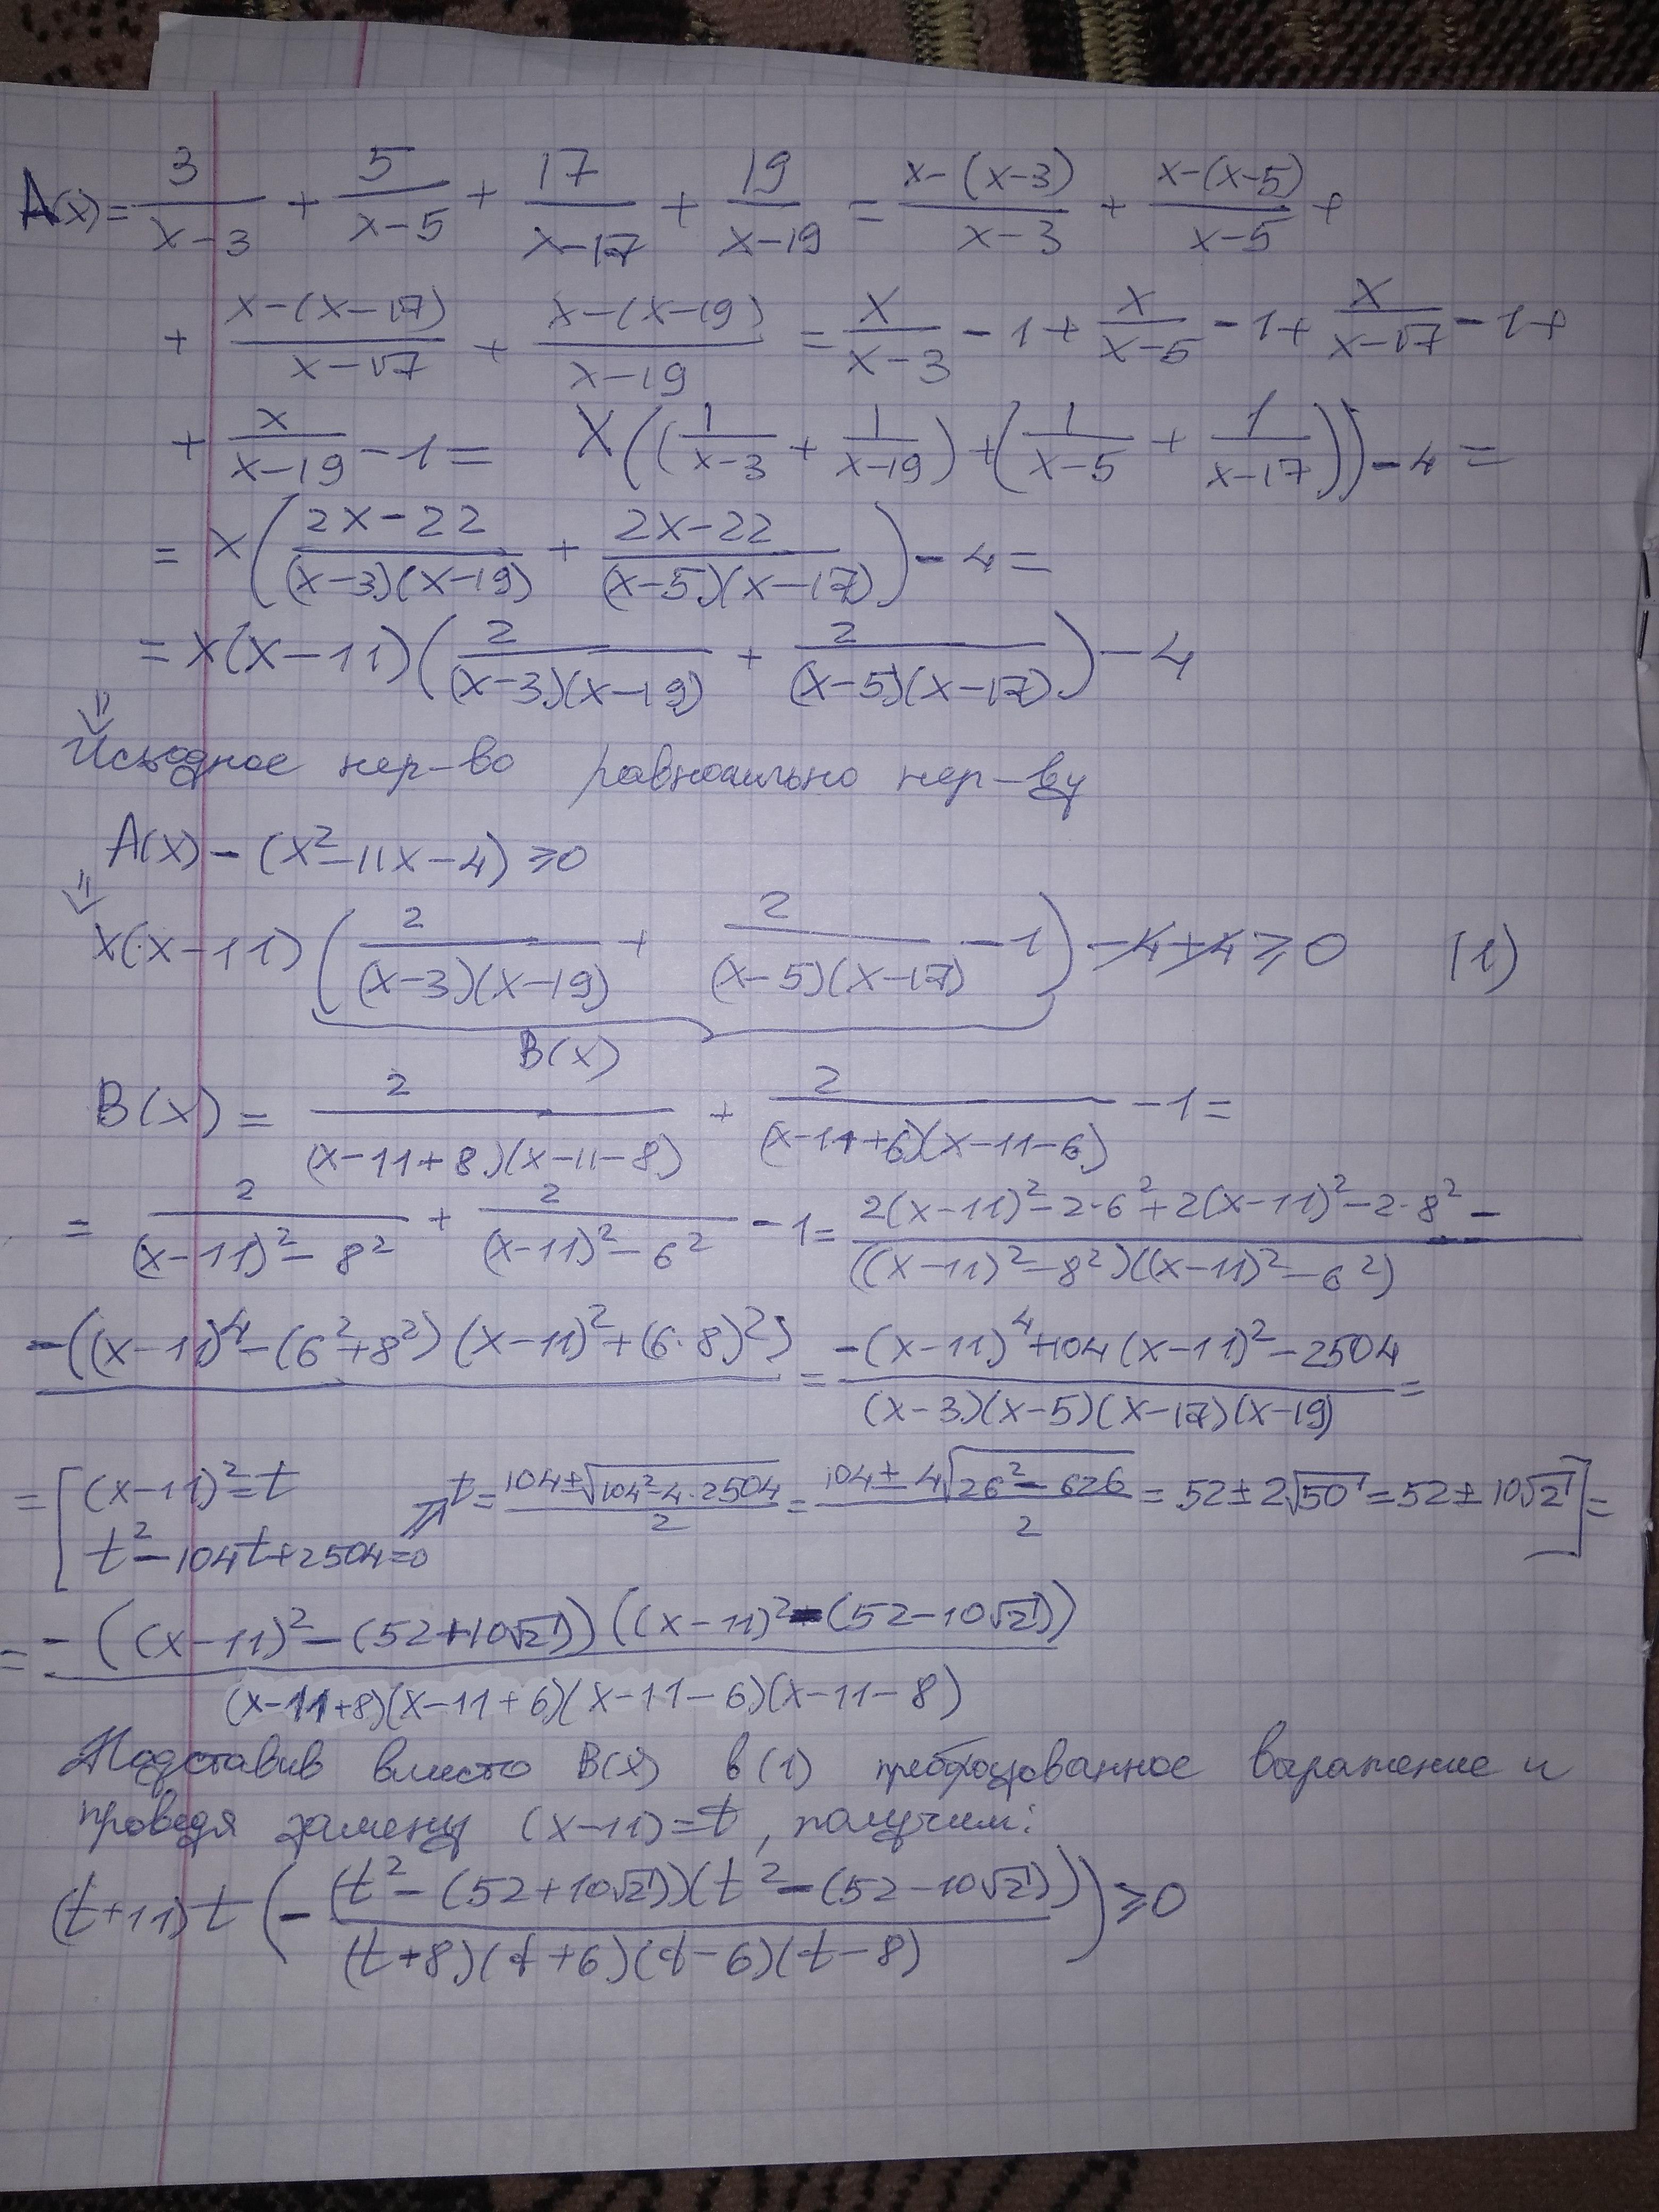 A(x) = 3/(x-3) + 5/(x-5) + 17/(x-17) + 19/(x-19) = (x-(x-3))/(x-3) + (x-(x-5))/(x-5) +
+ (x-(x-17))/(x-17) + (x-(x-19))/(x-19) = x/(x-3) - 1 + x/(x-5) - 1 + x/(x-17) - 1 +
+ x/(x-19) - 1 = x((1/(x-3) + 1/(x-19)) + (1/(x-5) + 1/(x-17))) - 4 =
= x((2x-22)/((x-3)(x-19)) + (2x-22)/((x-5)(x-17))) - 4 =
= x(x-11)(2/((x-3)(x-19)) + 2/((x-5)(x-17))) - 4
⇓
Исходное нер-во равносильно нер-ву
A(x) - (x²-11x-4) ≥ 0
⇓
x(x-11)(2/((x-3)(x-19)) + 2/((x-5)(x-17)) - 1) -4+4 ≥ 0 (1)
B(x)
B(x) = 2/((x-11+8)(x-11-8)) + 2/((x-11+6)(x-11-6)) - 1 =
= 2/((x-11)²-8²) + 2/((x-11)²-6²) - 1 = (2(x-11)²-2·6²+2(x-11)²-2·8² -)/(((x-11)²-8²)((x-11)²-6²))
-((x-11)⁴-(6²+8²)(x-11)²+(6·8)²) = (-(x-11)⁴+104(x-11)²-2504)/((x-3)(x-5)(x-17)(x-19)) =
= [(x-11)²=t
t²-104t+2504=0 ⇒ t = (104±√(104²-4·2504))/2 = (104±4√(26²-626))/2 = 52±2√50 = 52±10√2] =
= -((x-11)²-(52+10√2))((x-11)²-(52-10√2))/((x-11+8)(x-11+6)(x-11-6)(x-11-8))
Подставив вместо B(x) в (1) преобразованное выражение и
проведя замену (x-11)=t, получим:
(t+11)t(-(t²-(52+10√2))(t²-(52-10√2))/((t+8)(t+6)(t-6)(t-8))) ≥ 0